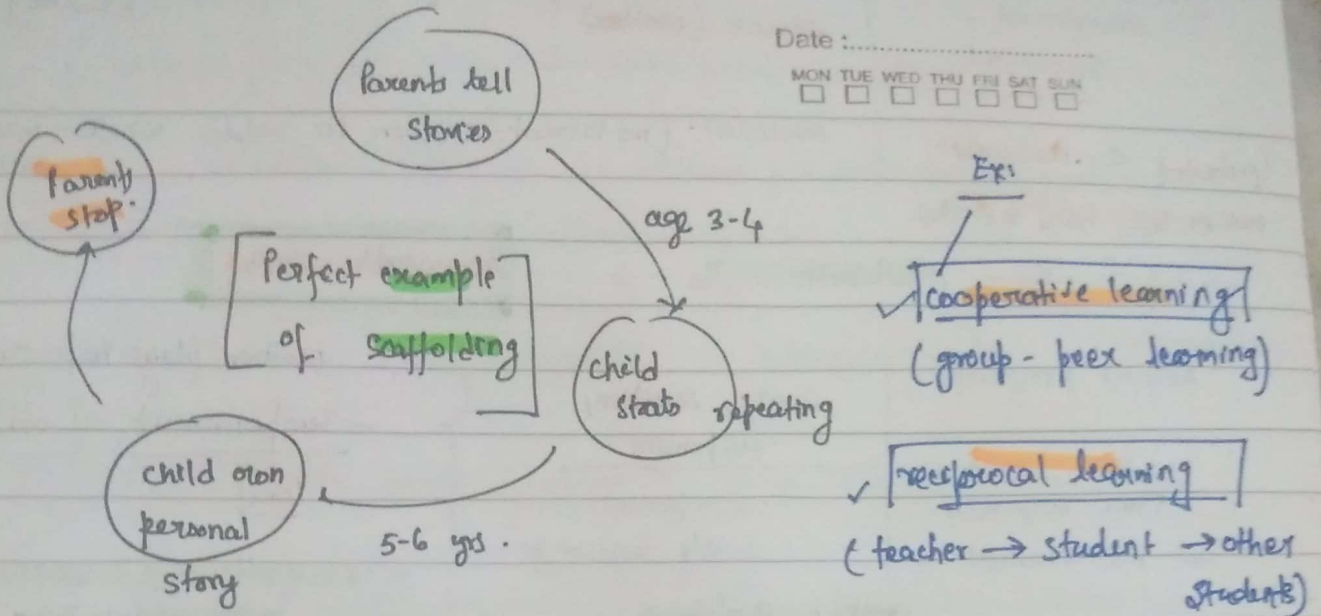 Date :
MON TUE WED THU FRI SAT SUN
Parents tell
stories
Parents
stop.
age 3-4
Perfect example
of scaffolding
child
strats repeating
child own
personal
story
5-6 yrs.
Ex:
cooperative learning
(group - peer learning)
reciprocal learning
(teacher → student → other
students)